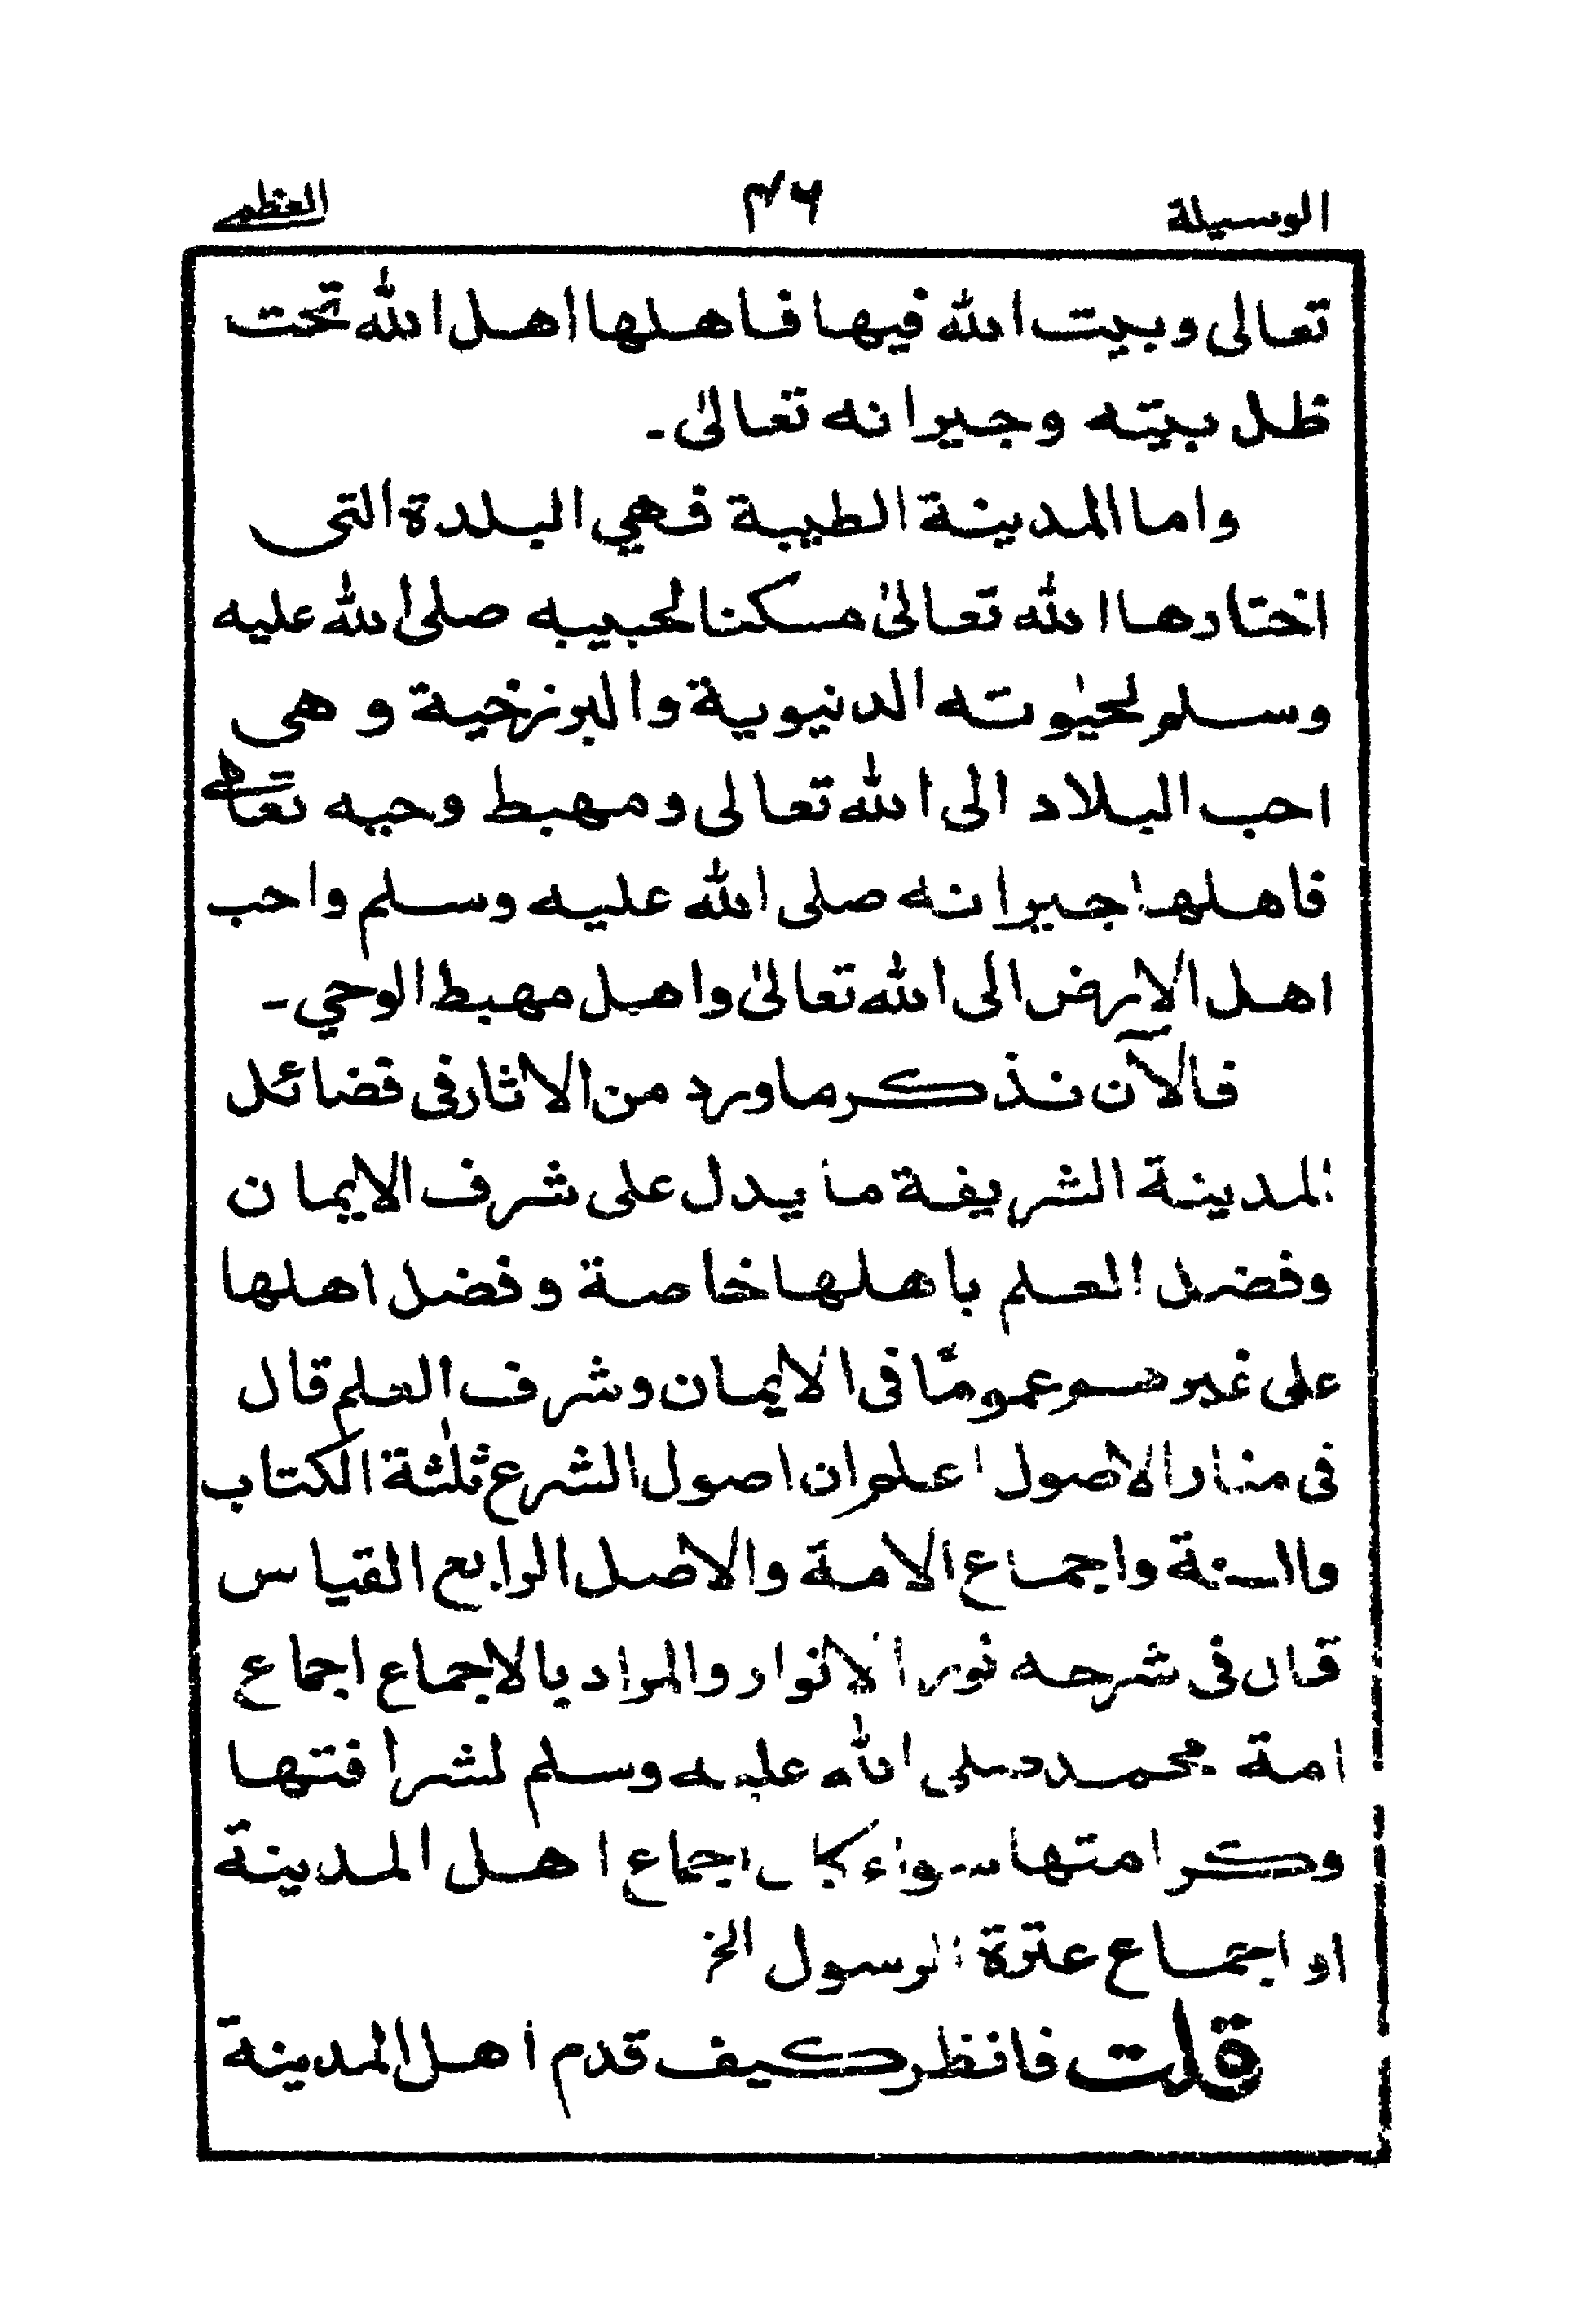 الوسيلة ۴۶ العظمى
تعالى وبيت الله فيها فاهلها اهل الله تحت
ظل بيته وجيرانه تعالىٰ۔
واما المدينة الطيبة فهي البلدة التى
اختارها الله تعالىٰ مسكنا لحبيبه صلى الله عليه
وسلم لحيٰوته الدنيوية والبرزخية وهى
احب البلاد الى الله تعالى ومهبط وحيه تعالى
فاهلها جيرانه صلى الله عليه وسلم واحب
اهل الارض الى الله تعالىٰ واهل مهبط الوحي۔
فالآن نذكر ما ورد من الاثار فى فضائل
المدينة الشريفة ما يدل على شرف الايمان
وفضل العلم باهلها خاصة وفضل اهلها
على غيرهم عمومًا فى الايمان وشرف العلم قال
فى منار الاصول اعلم ان اصول الشرع ثلٰثة الكتاب
والسنة واجماع الامة والاصل الرابع القياس
قال فى شرحه نور الانوار والمراد بالاجماع اجماع
امة محمد صلى الله عليه وسلم لشرافتها
وكرامتها سواء كان اجماع اهل المدينة
او اجتماع عترة الرسول الخ
قلت فانظر كيف قدم اهل المدينة